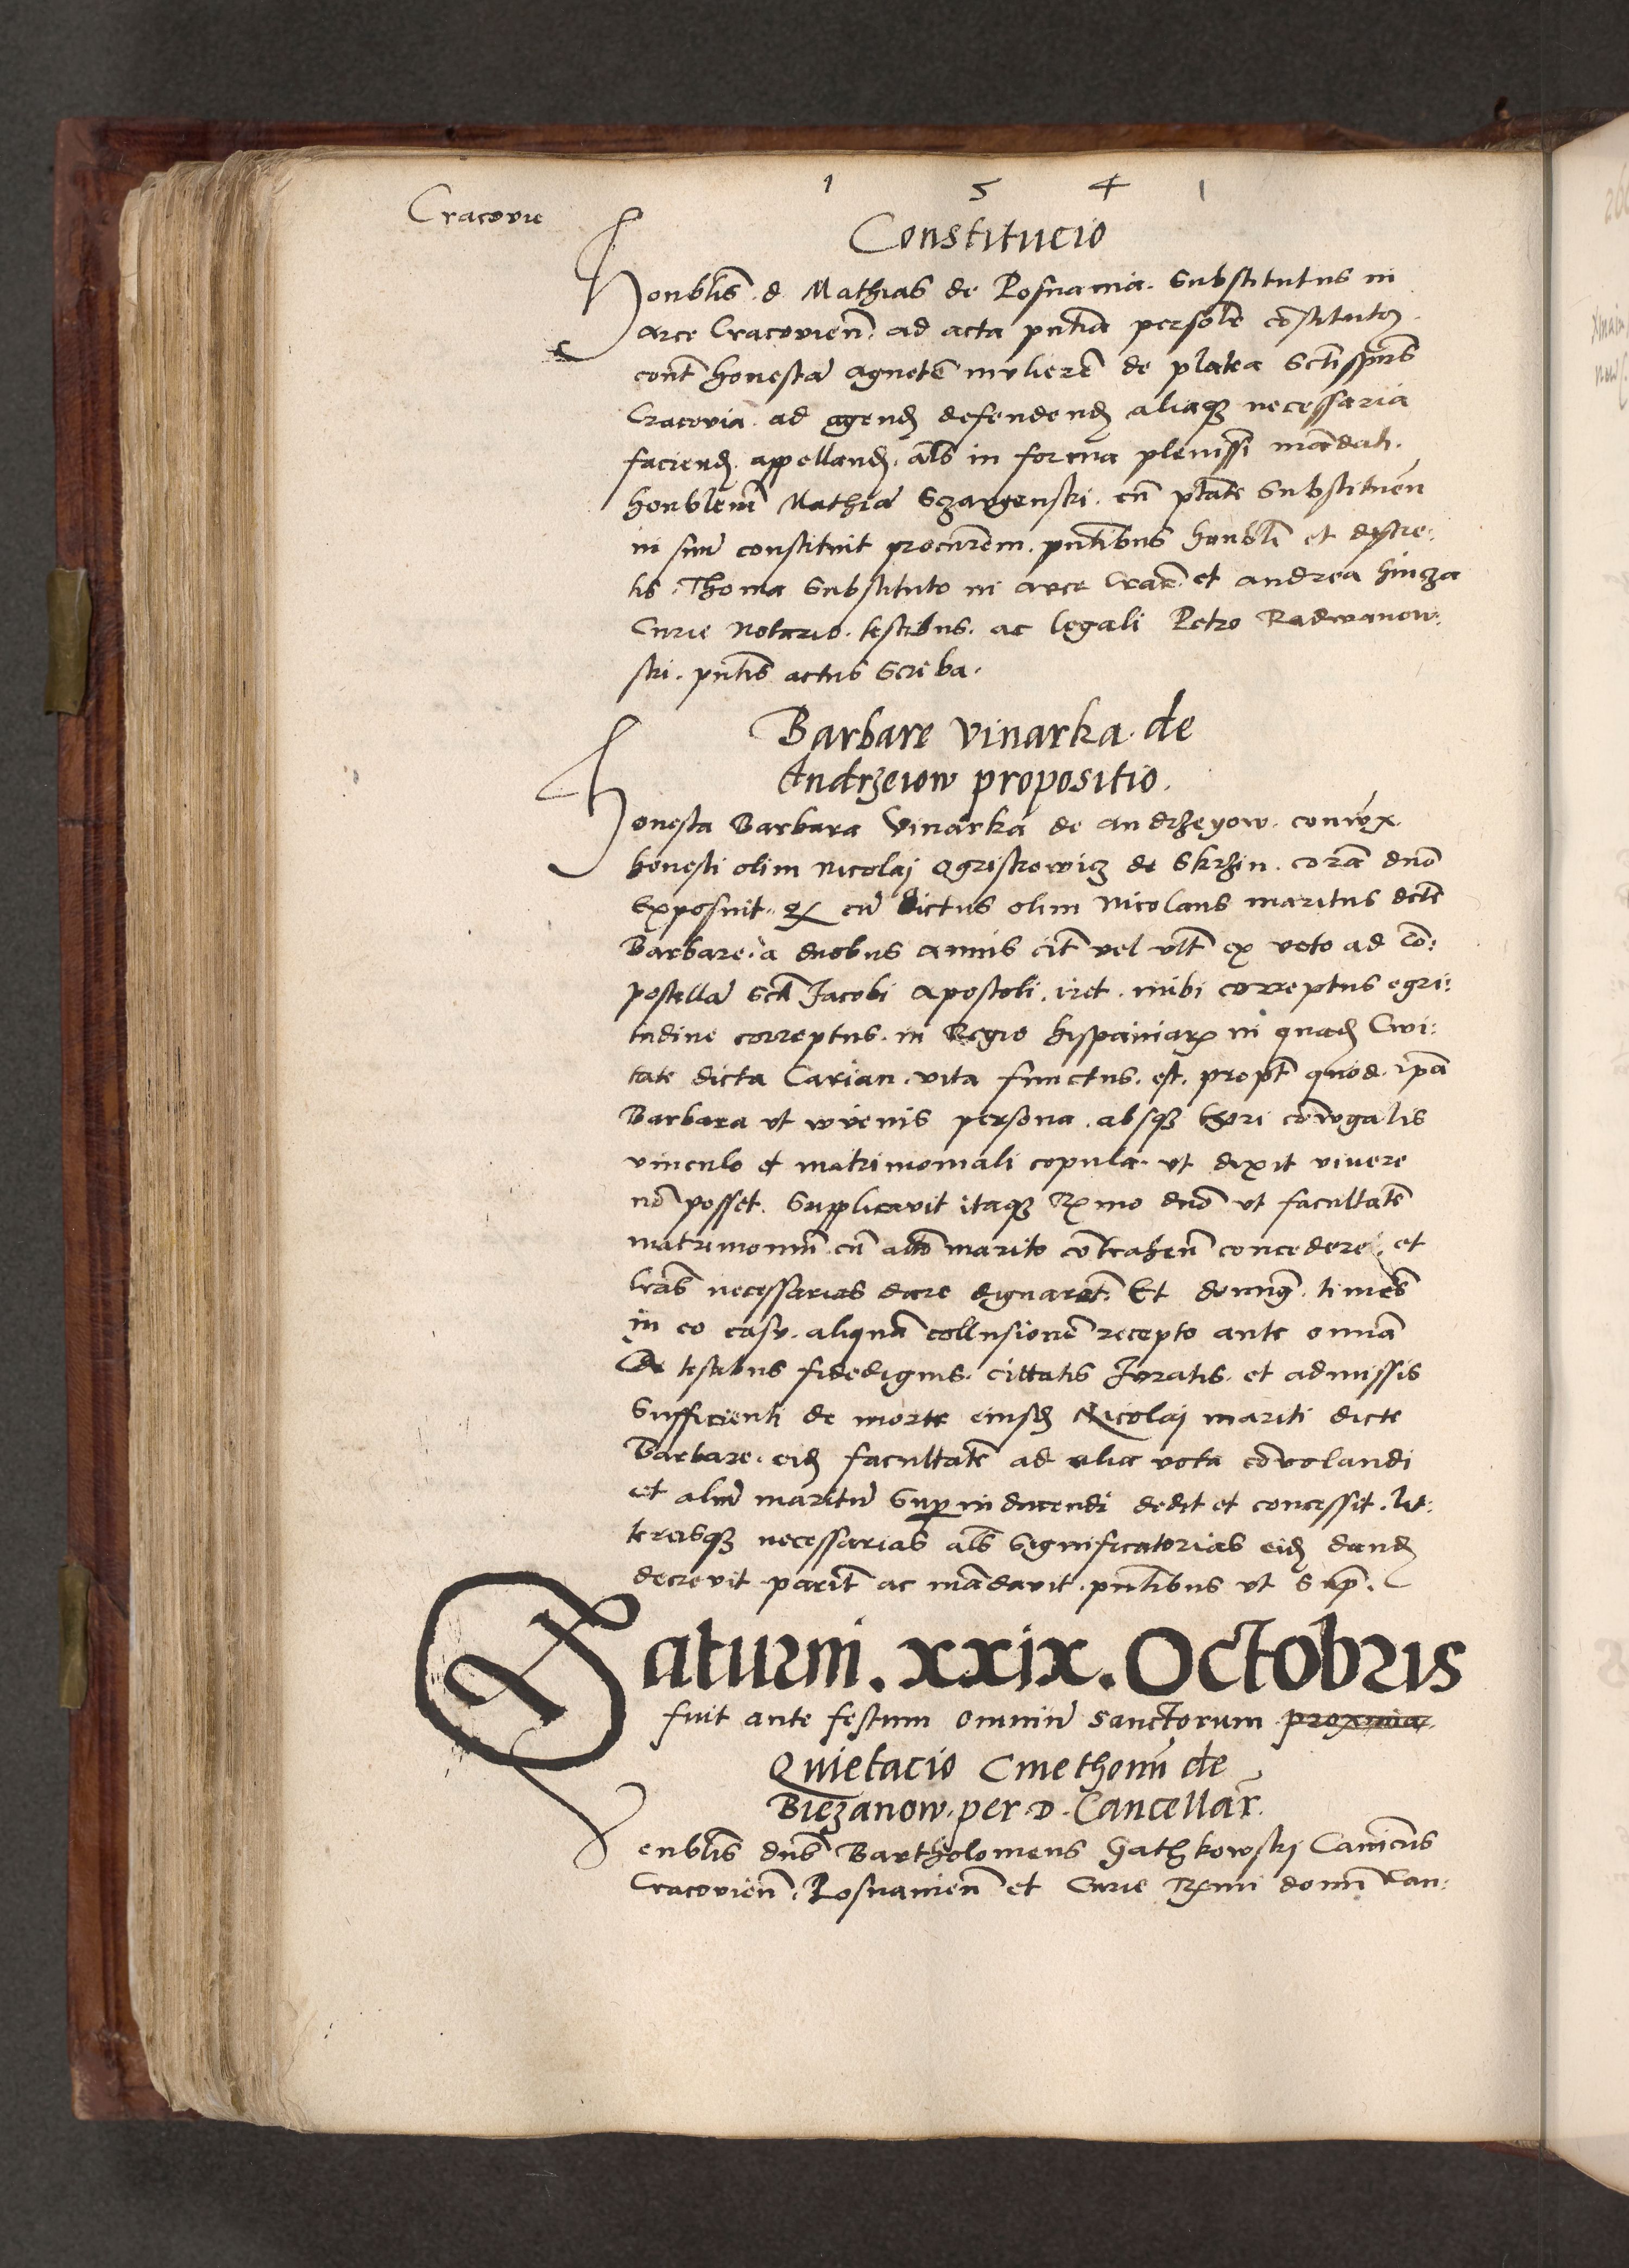 1 5 4 1
Cracovie
Constitucio
Honoblis d. Mathias de Posnania. Substitutus in
arce Cracovien. ad acta pntia personlr constitutus.
cont honestā agnetē mulierē de platea Sctisspirs
Cracovia. ad agend defendend aliaqz necessaria
faciend. appelland. als in forma plenissi mādati.
honoblem Mathiā. cū ptate Substituen
in suū constituit procurem. pntibus honobli et dyscre:
tis. Thoma Substituto in arce Crac. et andrea hincza
Curie Notario. testibus. ac legali Petro Radwanow:
ski. pntis actus Scriba.
Barbare vinarka de
Andrzeiow propositio.
Honesta Barbara Vinarka de andrzeyow. coniux
honesti olim nicolaj Ogristkowicz de Skrzin. corā dnō
Exposuit. qz cū dictus olim Nicolaus maritus dcte
Barbare. a duobus annis cit vel ult ex voto ad Cō:
postellā Scti Jacobi Apostoli. iret. inibi correptus egri:
tudine correptus. in Regio hispaniarz in quad Civi:
tate dicta Carian. vita functus. est. propt quod. ipā
Barbara ut iuvenis persona. absqz thori coniugalis
vinculo et matrimoniali copula. ut dixit vivere
nō posset. Supplicavit itaqz Rxmo dnō ut facultatē
matrimoniū cū alio marito cōtrahen concedere. et
lras necessarias dare dignaret. Et doming. timēs
in eo casu. aliquā collusionē recepto ante omnia
De testibus fidedignis. cittatis Juratis. et admissis
Sufficienti de morte eiusd Nicolaj mariti dicte
Barbare. eid facultatē ad alia vota cōvolandi
et aliū maritū Supinducendi dedit et concessit. lit:
terasqz necessarias als Significatorias eid dand
decrevit parit ac mādavit. pntibus ut Sup.
Saturni. xxix. Octobris
fuit ante festum omniū Sanctorum proxima
Quietacio Cmethonū de
Biezanow. per. D. Cancellar.
Venblis dns Bartholomeus Gathkowski Canicus
Cracovien. Posnanien et Curie Rxmi domn Can: